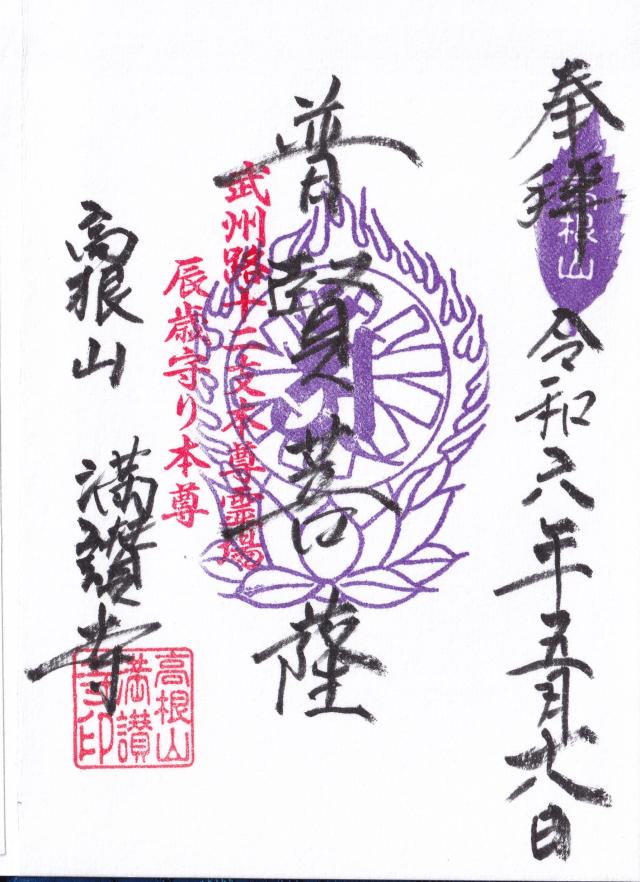 奉拝 令和六年五月十八日
高根山
普賢菩薩
武州路十二支本尊霊場
辰歳守り本尊
高根山 満讃寺
高根山
満讃
寺印